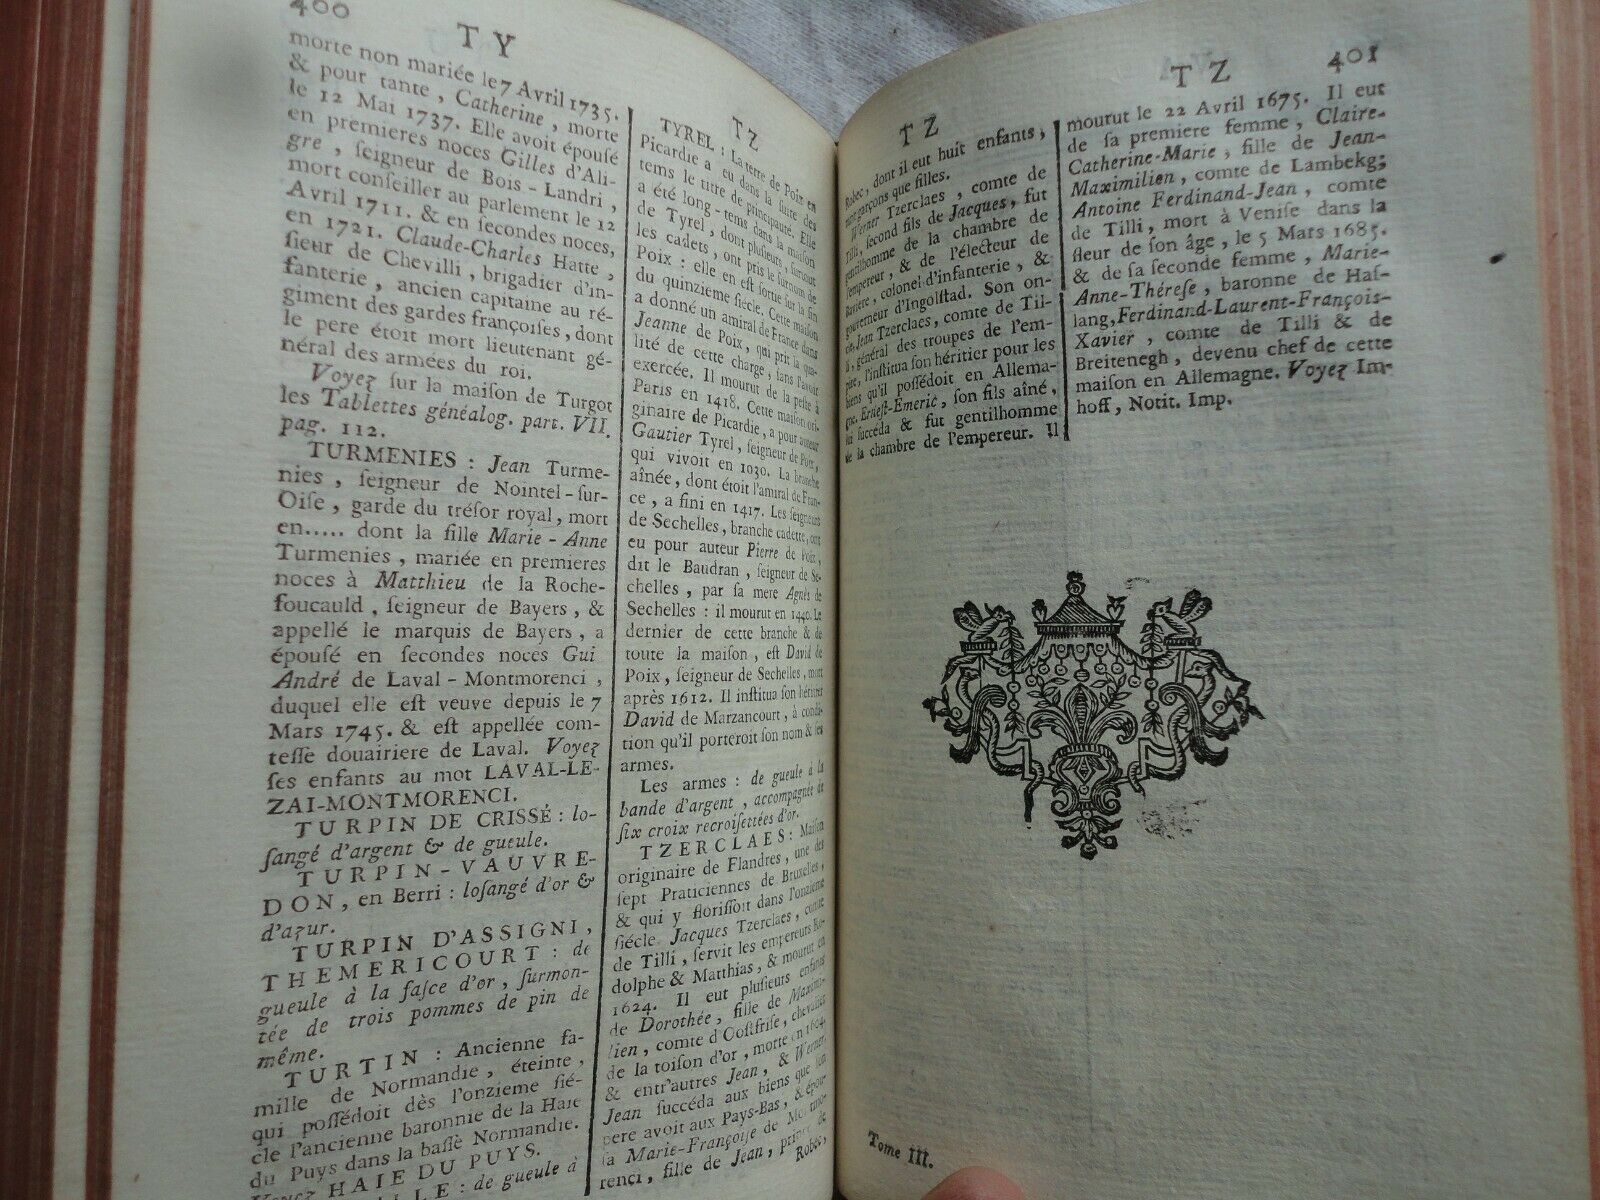 400
TY
morte non mariée le 7 Avril 1735.
& pour tante, Catherine, morte
le 12 Mai 1737. Elle avoit épousé
en premieres noces Gilles d'Ali-
gre, seigneur de Bois-Landri,
mort conseiller au parlement le 12
Avril 1711. & en secondes noces,
en 1721. Claude-Charles Hatte,
sieur de Chevilli, brigadier d'in-
fanterie, ancien capitaine au ré-
giment des gardes françoises, dont
le pere étoit mort lieutenant gé-
néral des armées du roi.
Voyez sur la maison de Turgot
les Tablettes généalog. part. VII.
pag. 112.
TURMENIES : Jean Turme-
nies, seigneur de Nointel-sur-
Oise, garde du trésor royal, mort
en..... dont la fille Marie-Anne
Turmenies, mariée en premieres
noces à Matthieu de la Roche-
foucauld, seigneur de Bayers, &
appellé le marquis de Bayers, a
épousé en secondes noces Gui
André de Laval-Montmorenci,
duquel elle est veuve depuis le 7
Mars 1745. & est appellée com-
tesse douairiere de Laval. Voyez
ses enfants au mot LAVAL-LE-
ZAI-MONTMORENCI.
TURPIN DE CRISSÉ : lo-
sangé d'argent & de gueule.
TURPIN-VAUVRE-
DON, en Berri : losangé d'or &
d'azur.
TURPIN D'ASSIGNI,
THEMERICOURT : de
gueule à la fasce d'or, surmon-
tée de trois pommes de pin de
même.
TURTIN : Ancienne fa-
mille de Normandie, éteinte,
qui possédoit dès l'onzieme sié-
cle l'ancienne baronnie de la Haie
du Puys dans la basse Normandie.
Voyez HAIE DU PUYS.
ILLE : de gueule à
TZ
TYREL : La terre de Poix en
Picardie a eu dans la suite des
tems le titre de principauté. Elle
a été long-tems dans la maison
de Tyrel, dont plusieurs, surtout
les cadets, ont pris le surnom de
Poix : elle en est sortue sur la fin
du quinzieme siécle. Cette maison
a donné un amiral de France dans
Jeanne de Poix, qui prit la qua-
lité de cette charge, sans l'avoir
exercée. Il mourut de la peste à
Paris en 1418. Cette maison ori-
ginaire de Picardie, a pour auteur
Gautier Tyrel, seigneur de Poix,
qui vivoit en 1030. La branche
aînée, dont étoit l'amiral de Fran-
ce, a fini en 1417. Les seigneurs
de Sechelles, branche cadette, ont
eu pour auteur Pierre de Poix,
dit le Baudran, seigneur de Se-
chelles, par sa mere Agnès de
Sechelles : il mourut en 1440. Le
dernier de cette branche & de
toute la maison, est David de
Poix, seigneur de Sechelles, mort
après 1612. Il institua son héritier
David de Marzancourt, à condi-
tion qu'il porteroit son nom & ses
armes.
Les armes : de gueule à la
bande d'argent, accompagnée de
six croix recroisettées d'or.
TZERCLAES : Maison
originaire de Flandres, une des
sept Praticiennes de Bruxelles,
& qui y florissoit dans l'onzieme
siécle. Jacques Tzerclaes, comte
de Tilli, servit les empereurs Ro-
dolphe & Matthias, & mourut en
1624. Il eut plusieurs enfants
de Dorothée, fille de Maximi-
lien, comte d'Oostfrise, chevalier
de la toison d'or, morte en 1604.
& entr'autres Jean, & Werner.
Jean succéda aux biens que son
pere avoit aux Pays-Bas, & épou-
sa Marie-Françoise de Montmo-
renci, fille de Jean, prince de
Robec,
TZ
Robec, dont il eut huit enfants,
tant garçons que filles.
Werner Tzerclaes, comte de
Tilli, second fils de Jacques, fut
gentilhomme de la chambre de
l'empereur, & de l'électeur de
Baviere, colonel d'infanterie, &
gouverneur d'Ingolstad. Son on-
cle, Jean Tzerclaes, comte de Til-
li, général des troupes de l'em-
pire, l'institua son héritier pour les
biens qu'il possédoit en Allema-
gne. Ernest-Emeric, son fils aîné,
lui succéda & fut gentilhomme
de la chambre de l'empereur. Il
TZ
401
mourut le 22 Avril 1675. Il eut
de sa premiere femme, Claire-
Catherine-Marie, fille de Jean-
Maximilien, comte de Lambekg;
Antoine Ferdinand-Jean, comte
de Tilli, mort à Venise dans la
fleur de son âge, le 5 Mars 1685.
& de sa seconde femme, Marie-
Anne-Thérese, baronne de Has-
lang, Ferdinand-Laurent-François-
Xavier, comte de Tilli & de
Breitenegh, devenu chef de cette
maison en Allemagne. Voyez Im-
hoff, Notit. Imp.
Tome III.